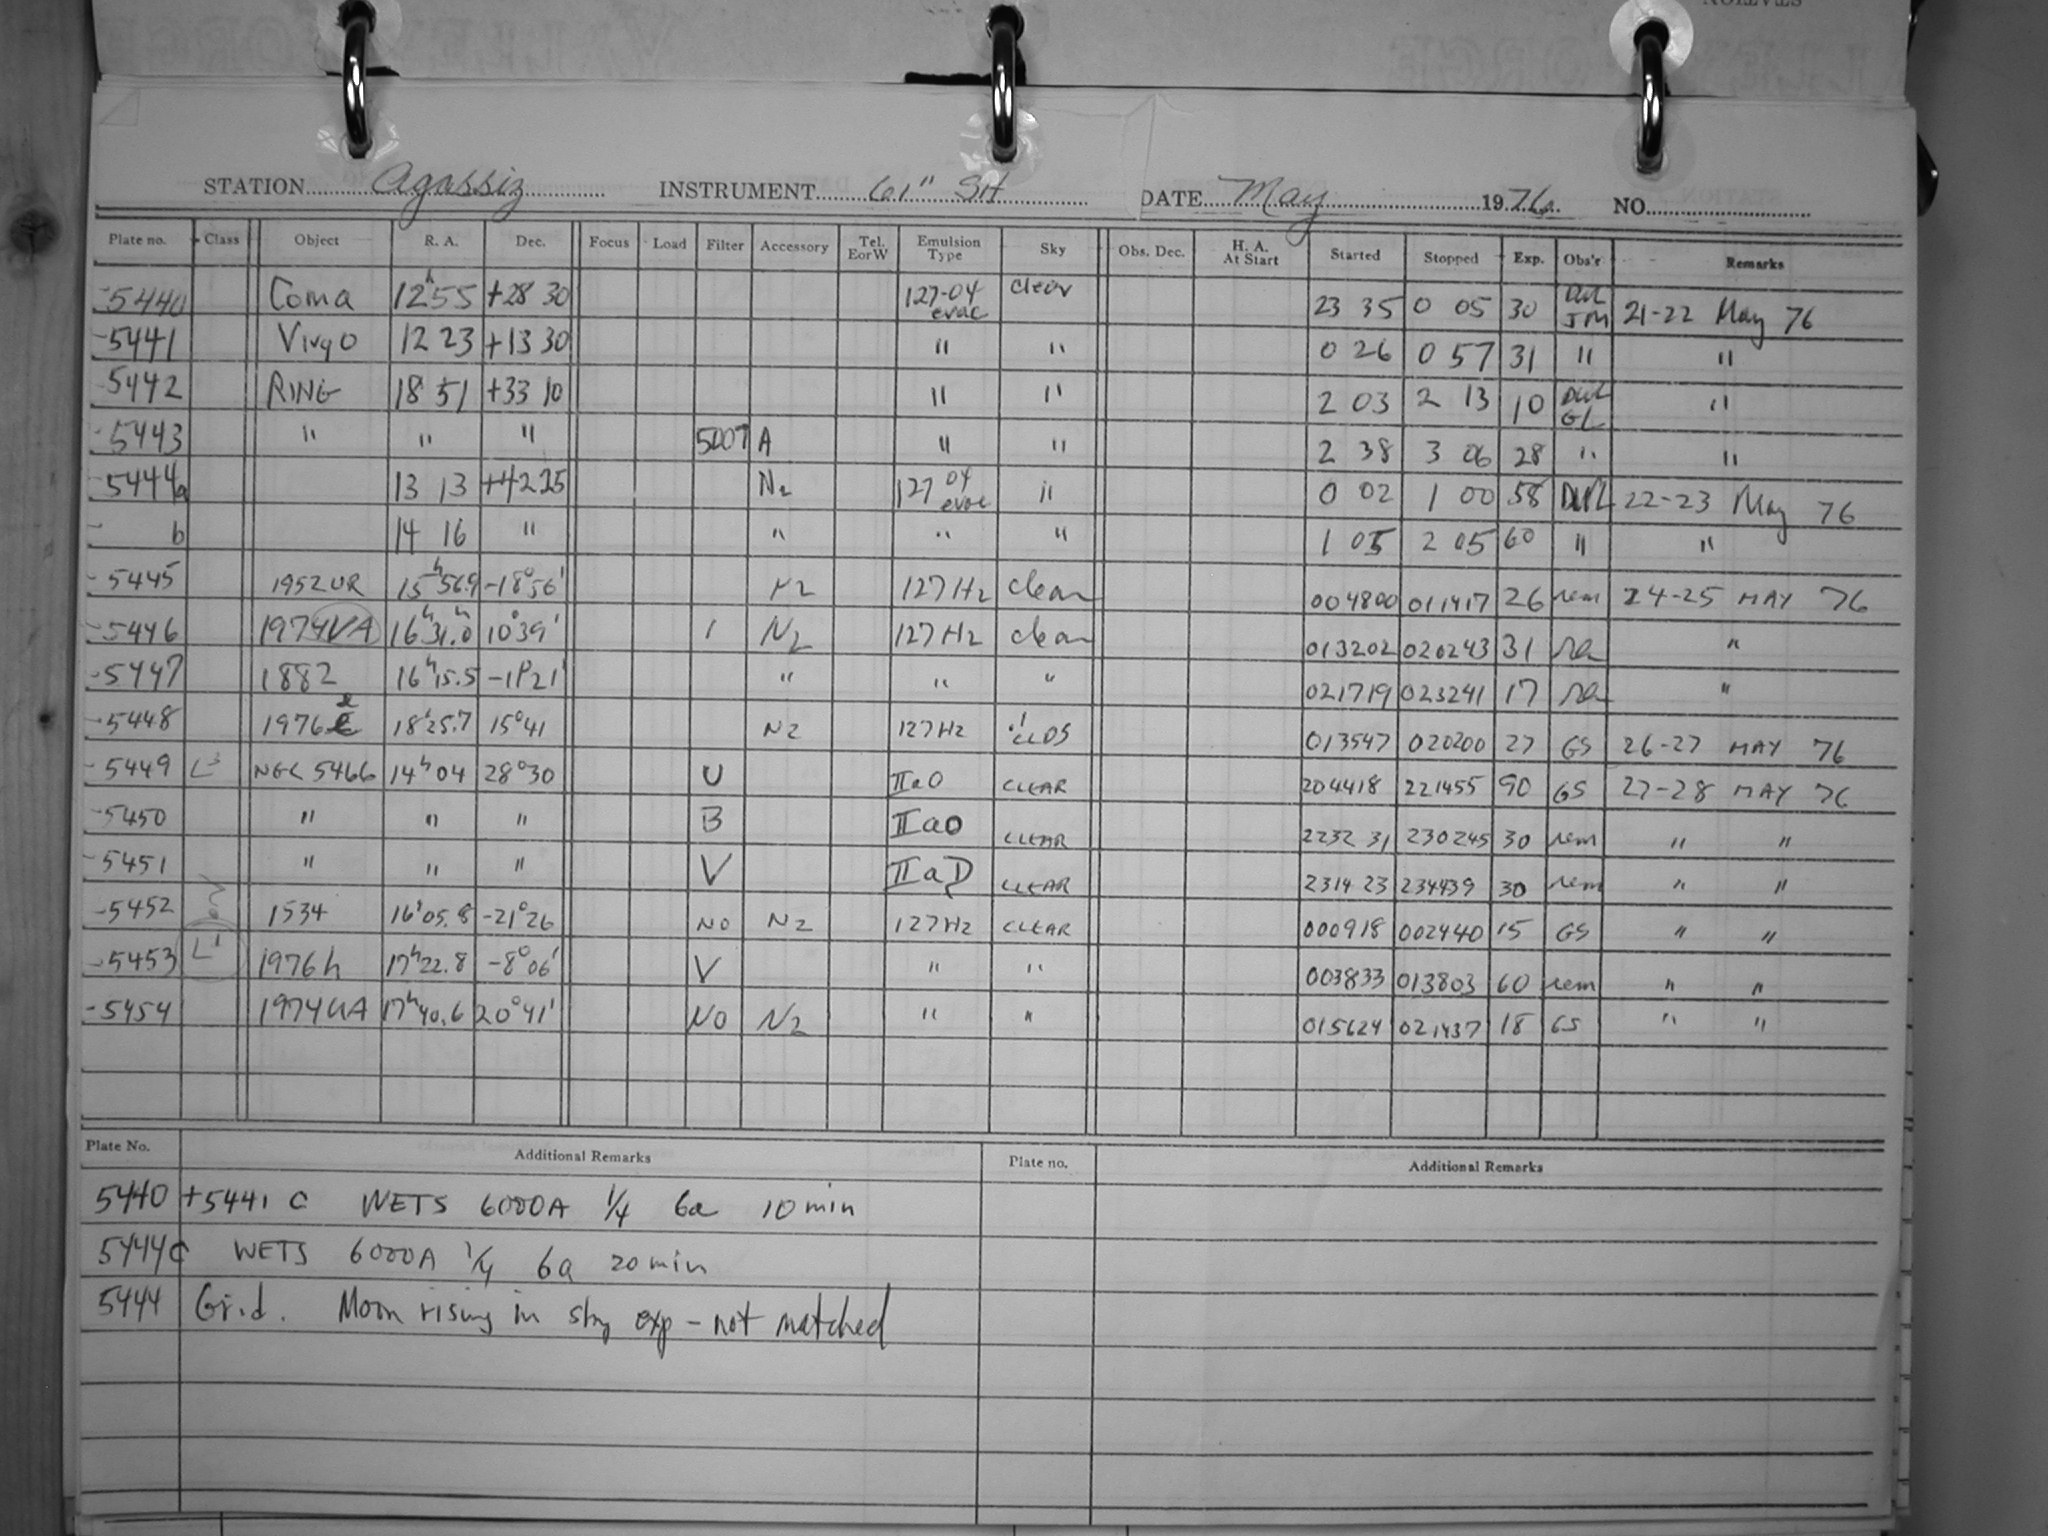 STATION Agassiz INSTRUMENT 61" SH DATE May 1976 NO.
Plate no. Class Object R. A. Dec. Focus Load Filter Accessory Tel. EorW Emulsion Type Sky Obs. Dec. H. A. At Start Started Stopped Exp. Obs'r Remarks
-5440 Coma 12h55 +28 30 127-04 evac clear 23 35 0 05 30 DWL JM 21-22 May 76
-5441 Virgo 12 23 +13 30 " " 0 26 0 57 31 " "
-5442 RING 18 51 +33 10 " " 2 03 2 13 10 DWL GL "
-5443 " " " 5007 A " " 2 38 3 06 28 " "
-5444a 13 13 +42 25 N2 127 04 evac " 0 02 1 00 58 DWL 22-23 May 76
- b 14 16 " " " " 1 05 2 05 60 " "
-5445 1952UR 15h56.9 -18°56' N2 127Hz clear 004800 011417 26 rem 24-25 MAY 76
-5446 1974VA 16h31.0 10°39' N2 127Hz clear 013202 020243 31 "
-5447 1882 16h15.5 -1°21' " " " 021719 023241 17 "
-5448 1976 18h25.7 15°41 N2 127Hz 013547 020200 27 GS 26-27 MAY 76
-5449 L3 NGC 5466 14h04 28°30 U IIaO CLEAR 204418 221455 90 GS 27-28 MAY 76
-5450 " " " B IIaO CLEAR 2232 31 230245 30 rem " "
-5451 " " " V IIaD CLEAR 2314 23 234439 30 rem " "
-5452 1534 16h05.8 -21°26 NO N2 127Hz CLEAR 000918 002440 15 GS " "
-5453 L1 1976h 17h22.8 -8°06' V " " 003833 013803 60 rem " "
-5454 1974UA 17h40.6 20°41' NO N2 " " 015624 021437 18 GS " "
Plate No. Additional Remarks Plate no. Additional Remarks
5440 +5441 C WETS 6000A 1/4 6a 10 min
5444C WETS 6000A 1/4 6a 20 min
5444 Grid. Moon rising in sky exp - not matched